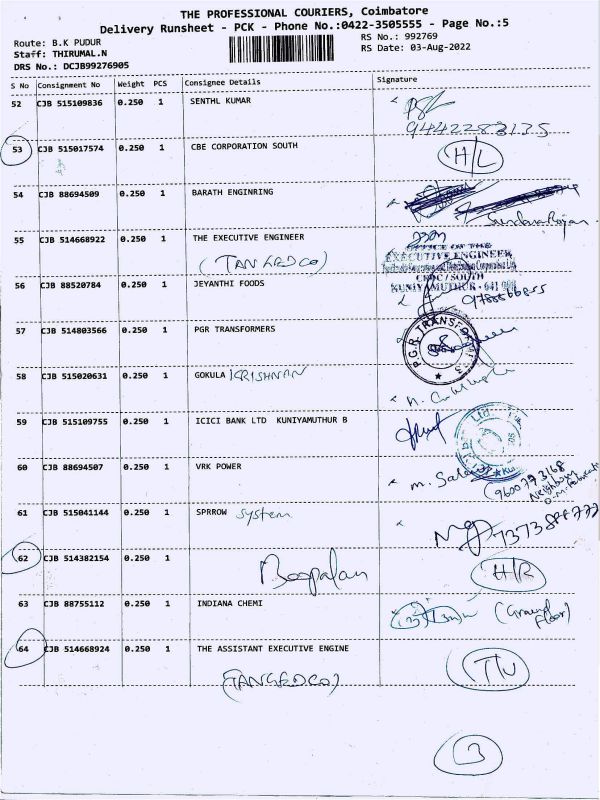 THE PROFESSIONAL COURIERS, Coimbatore
Delivery Runsheet - PCK - Phone No.:0422-3505555 - Page No.:5
Route: B.K PUDUR
Staff: THIRUMAL.N
DRS No.: DCJB99276905
RS No.: 992769
RS Date: 03-Aug-2022
S No Consignment No Weight PCS Consignee Details Signature
52 CJB 515109836 0.250 1 SENTHL KUMAR
9442283135
53 CJB 515017574 0.250 1 CBE CORPORATION SOUTH H/L
54 CJB 88694509 0.250 1 BARATH ENGINRING
55 CJB 514668922 0.250 1 THE EXECUTIVE ENGINEER
(TANGEDCO)
OFFICE OF THE
EXECUTIVE ENGINEER
CEDC/SOUTH
KUNIYAMUTHUR - 641 008
56 CJB 88520784 0.250 1 JEYANTHI FOODS
57 CJB 514803566 0.250 1 PGR TRANSFORMERS
P.G.R. TRANSFORMERS
58 CJB 515020631 0.250 1 GOKULA KRISHNAN
59 CJB 515109755 0.250 1 ICICI BANK LTD KUNIYAMUTHUR B
60 CJB 88694507 0.250 1 VRK POWER
61 CJB 515041144 0.250 1 SPRROW system
62 CJB 514382154 0.250 1 Boopalan H/R
63 CJB 88755112 0.250 1 INDIANA CHEMI (Ground Floor)
64 CJB 514668924 0.250 1 THE ASSISTANT EXECUTIVE ENGINE
(TANGEDCO)
3